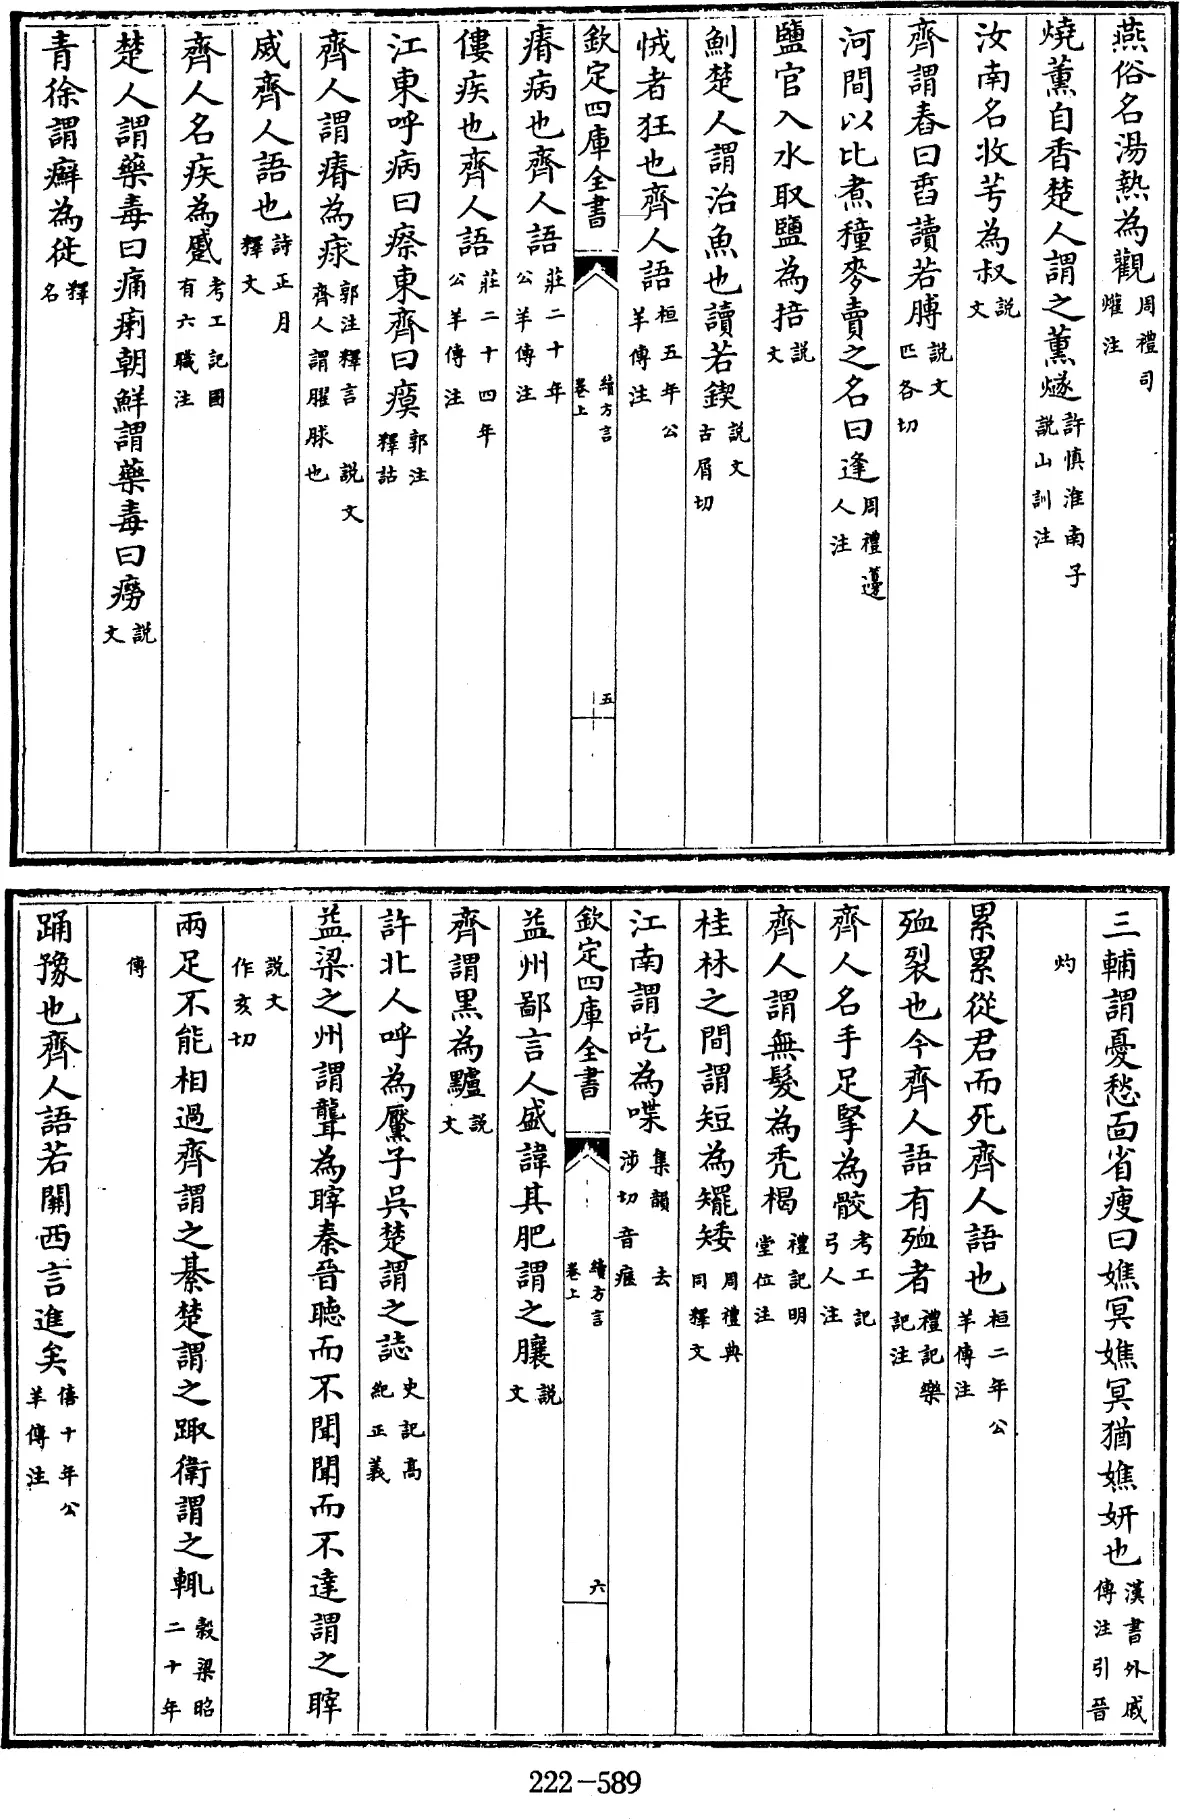 燕俗名湯熱為觀周禮司爟注
燒薰自香楚人謂之薰燧許慎淮南子說山訓注
汝南名收芌為叔說文
齊謂舂曰䑔讀若膊說文匹各切
河間以比煮穜麥賣之名曰逢周禮籩人注
鹽官入水取鹽為掊說文
魝楚人謂治魚也讀若鍥說文古屑切
㤜者狂也齊人語桓五年公羊傳注
欽定四庫全書
續方言卷上
五
瘠病也齊人語莊二十年公羊傳注
僂疾也齊人語莊二十四年公羊傳注
江東呼病曰瘵東齊曰瘼郭注釋詁
齊人謂瘠為㾇郭注釋言 說文齊人謂臞脙也
威齊人語也詩正月釋文
齊人名疾為戚考工記國有六職注
楚人謂藥毒曰痛瘌朝鮮謂藥毒曰癆說文
青徐謂癬為徙釋名
三輔謂憂愁面省瘦曰嫶冥嫶冥猶嫶妍也漢書外戚傳注引晉
灼
累累從君而死齊人語也桓二年公羊傳注
殈裂也今齊人語有殈者禮記樂記注
齊人名手足掔為骹考工記弓人注
齊人謂無髮為禿楬禮記明堂位注
桂林之間謂短為䂓矮周禮典同釋文
江南謂吃為喋集韻 去涉切音㾀
欽定四庫全書
續方言卷上
六
益州鄙言人盛諱其肥謂之䑋說文
齊謂黑為黸說文
許北人呼為黶子吳楚謂之誌史記高紀正義
益梁之州謂聾為聹秦晉聽而不聞聞而不達謂之聹
說文作亥切
兩足不能相過齊謂之綦楚謂之踙衛謂之輒穀梁昭二十年
傳
踊豫也齊人語若關西言進矣僖十年公羊傳注
222-589